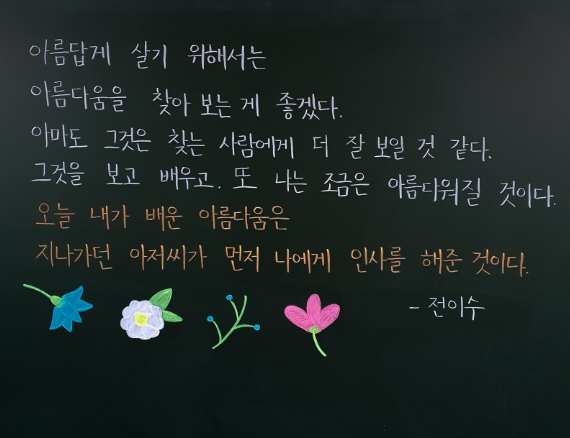 아름답게 살기 위해서는
아름다움을 찾아 보는 게 좋겠다.
아마도 그것은 찾는 사람에게 더 잘 보일 것 같다.
그것을 보고 배우고. 또 나는 조금은 아름다워질 것이다.
오늘 내가 배운 아름다움은
지나가던 아저씨가 먼저 나에게 인사를 해준 것이다.
- 전이수